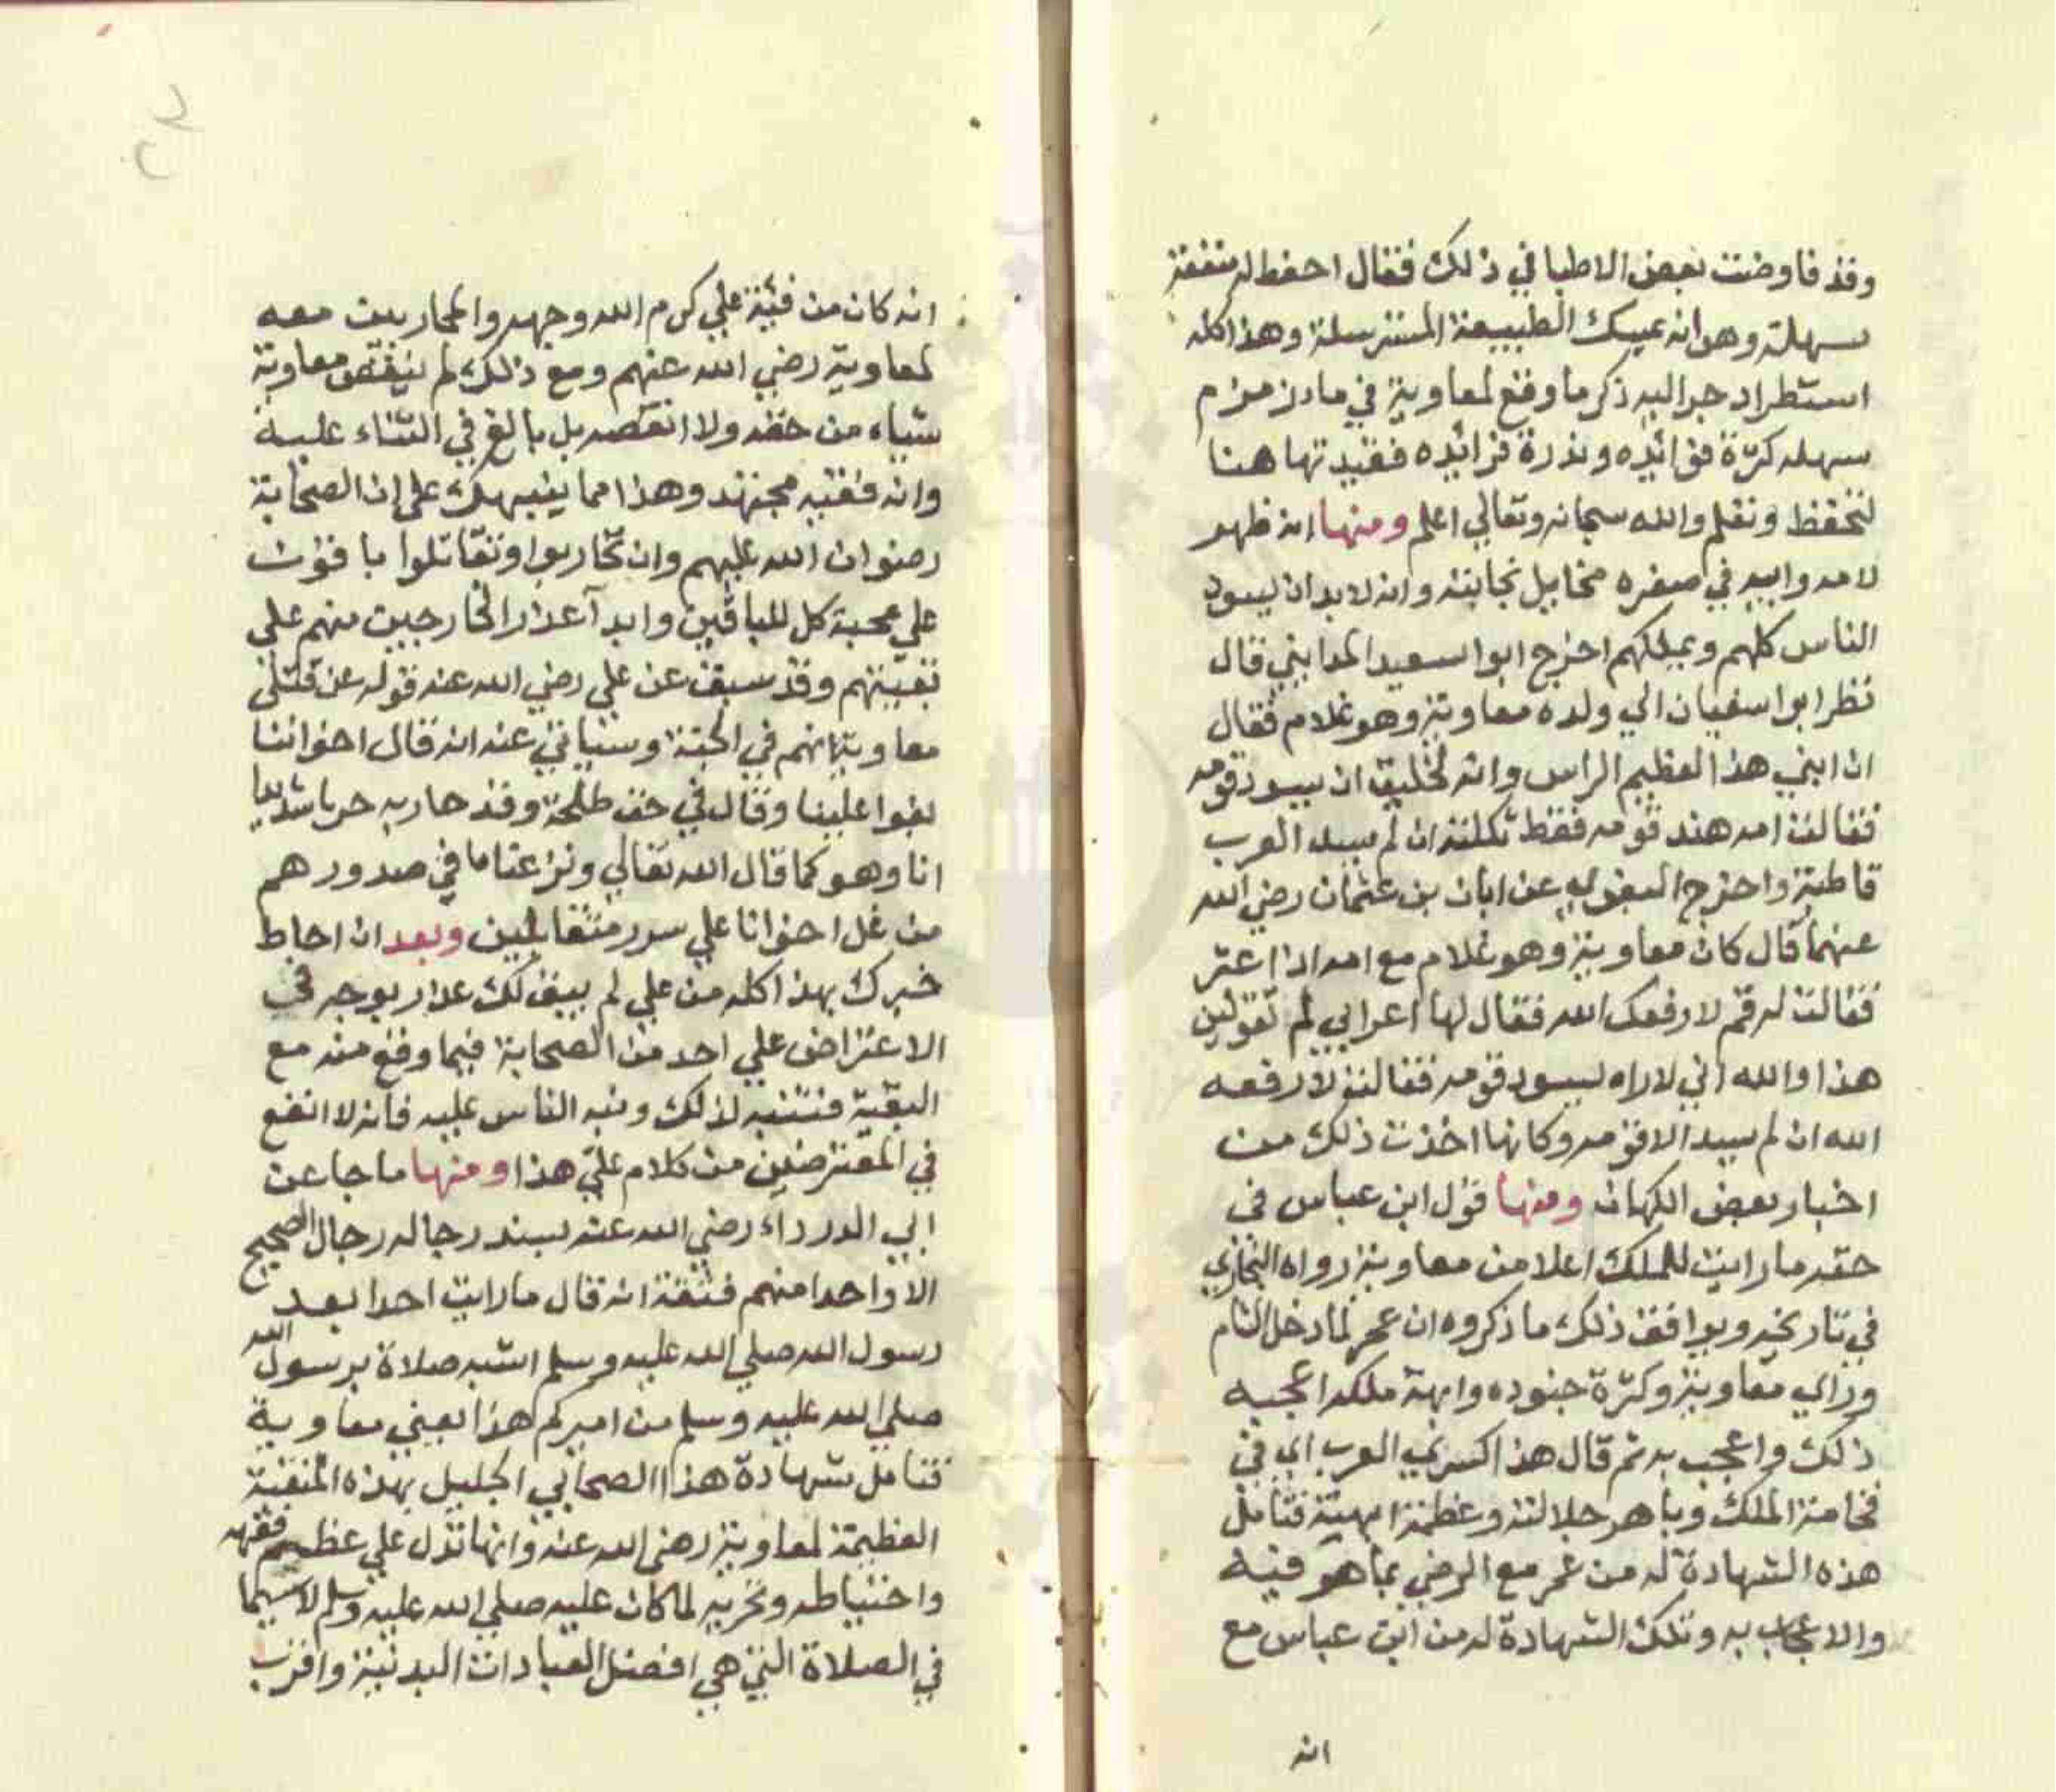 وقد فاوضت بعض الاطبا في ذلك فقال احفط له منفعة
سهلة وهو انه يمسك الطبيعة المسترسلة وهذا كله
استطراد جر اليه ذكر ما وقع لمعاوية في ماء زمزم
سهله كثرة فوائده وندرة فرائده فقيدتها هنا
لتحفظ وتعلم والله سبحانه وتعالي اعلم ومنها انه ظهر
لامه وابيه في صغره مخايل نجابته وانه لابد ان يسود
الناس كلهم ويملكهم اخرج ابوا سعيد المدايني قال
نظر ابوا سفيان الي ولده معاوية وهو غلام فقال
ان ابني هذ العظيم الراس وانه لخليق ان يسود قومه
فقالت امه هند قومه فقط ثكلته ان لم يسد العرب
قاطبة واخرج البغوي عن ابان بن عثمان رضي الله
عنهما قال كان معاوية وهو غلام مع امه اذا عثر
فقالت له قم لا رفعك الله فقال لها اعرابي لم تقولين
هذا والله اني لاراه ليسود قومه فقالت لا رفعه
الله ان لم يسد الا قومه وكانها اخذت ذلك من
اخبار بعض الكهان ومنها قول ابن عباس في
حقه ما رايت للملك اعلا من معاوية رواه البخاري
في تاريخه ويوافق ذلك ما ذكروه ان عمر لما دخل الشام
وراي معاوية وكثرة جنوده وابهة ملكه اعجبه
ذلك واعجب به ثم قال هذا كسري العرب اي في
فخامة الملك وباهر جلالته وعظمة ابهيته فتامل
هذه الشهادة له من عمر مع الرضي بما هو فيه
والاعجاب به وتلك الشهادة له من ابن عباس مع
انه
انه كان من فئة علي كرم الله وجهه والمحاربين معه
لمعاوية رضي الله عنهم ومع ذلك لم ينقص معاوية
شياء من حقه ولا انتقصه بل بالغ في الثناء عليه
وانه فقيه مجتهد وهذا مما ينبهك علي ان الصحابة
رضوان الله عليهم وان تحاربوا وتقاتلوا باقون
علي محبة كل للباقين وابدآ عذار الخارجين منهم علي
بقيتهم وقد سبق عن علي رضي الله عنه قوله عن قتلي
معاوية انهم في الجنة وسياتي عنه انه قال اخواننا
بغوا علينا وقال في حق طلحة وقد حاربه حربا شديدا
انا وهو كما قال الله تعالي ونزعنا ما في صدورهم
من غل اخوانا علي سرر متقابلين وبعد ان احاط
خبرك بهذا كله من علي لم يبق لك عذر بوجه في
الاعتراض علي احد من الصحابة فيما وقع منه مع
البقية فتنبه لذلك ونبه الناس عليه فانه لا انفع
في المعترضين من كلام علي هذا ومنها ما جا عن
ابي الدرداء رضي الله عنه بسند رجاله رجال الصحيح
الا واحدا منهم فثقة انه قال ما رايت احدا بعد
رسول الله صلي الله عليه وسلم اشبه صلاة برسول الله
صلي الله عليه وسلم من اميركم هذا يعني معاوية
فتامل شهادة هذا الصحابي الجليل بهذه المنقبة
العظيمة لمعاوية رضي الله عنه وانها تدل علي عظيم فقهه
واحتياطه وتحريه لما كان عليه صلي الله عليه وسلم لا سيما
في الصلاة التي هي افضل العبادات البدنية واقرب